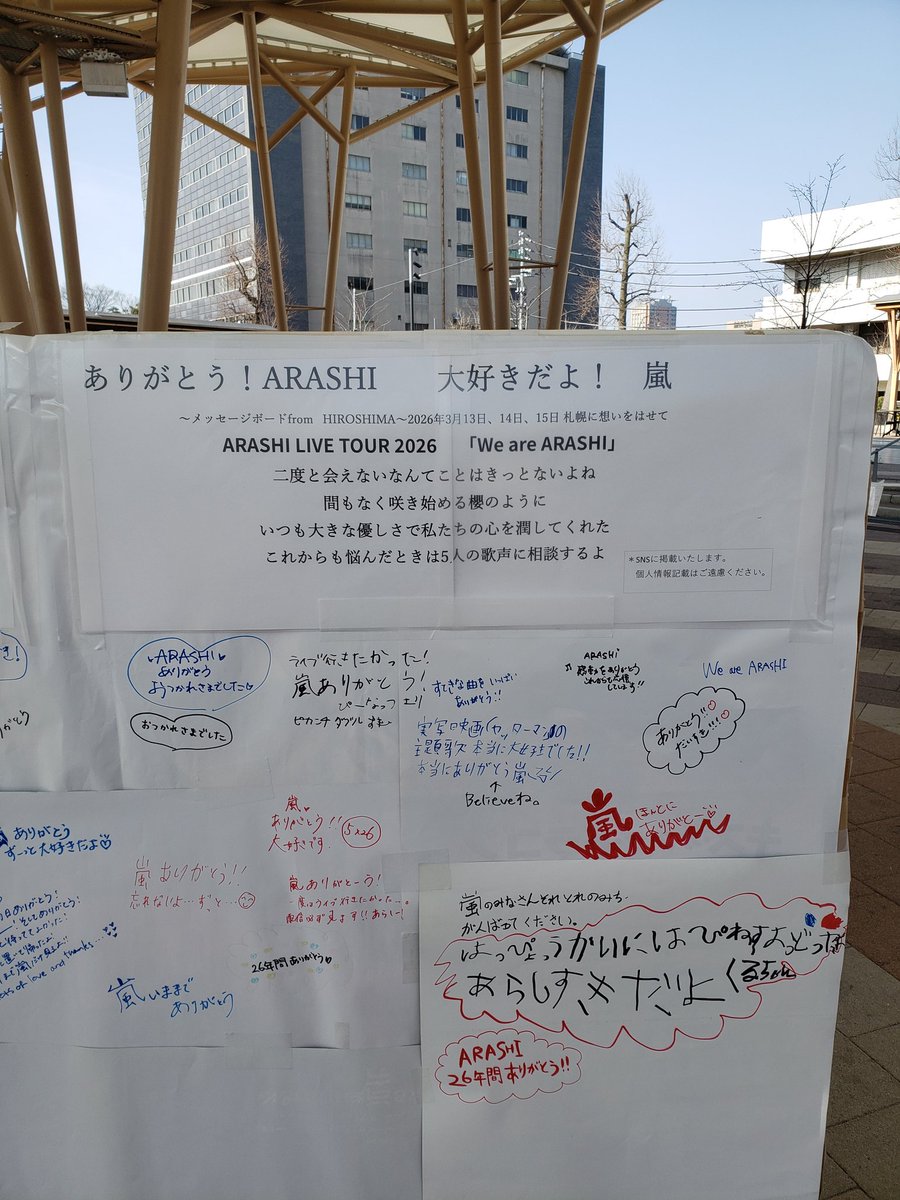 ありがとう！ARASHI　　大好きだよ！　嵐
～メッセージボードfrom HIROSHIMA～2026年3月13日、14日、15日 札幌に想いをはせて
ARASHI LIVE TOUR 2026 「We are ARASHI」
二度と会えないなんてことはきっとないよね
間もなく咲き始める櫻のように
いつも大きな優しさで私たちの心を潤してくれた
これからも悩んだときは5人の歌声に相談するよ
＊SNSに掲載いたします。
個人情報記載はご遠慮ください。
ARASHI
ありがとう
おつかれさまでした
おつかれさまでした
ライブ行きたかった！
嵐ありがとう！
ピカンチ ダブル
すてきな曲をいっぱい
ありがとう!!
ARASHI
感動をありがとう
これからも
We are ARASHI
ありがとう!!
だいすき!!!
実写映画ヤッターマンの
主題歌本当に大好きでした!!
本当にありがとう嵐
↑
Believeね。
嵐
ほんとに
ありがとー
ありがとう
ずーっと大好きだよ♡
嵐
ありがとう!!
大好きです。
5×26
嵐ありがとう!!
忘れないよ…ずっと…
嵐ありがとーう!
26年間ありがとう
嵐いままで
ありがとう
love and thanks...
嵐のみなさんそれぞれのみち
がんばってください。
はっぴょうかいにはっぴねす
あらしすきだよ
ARASHI
26年間ありがとう!!